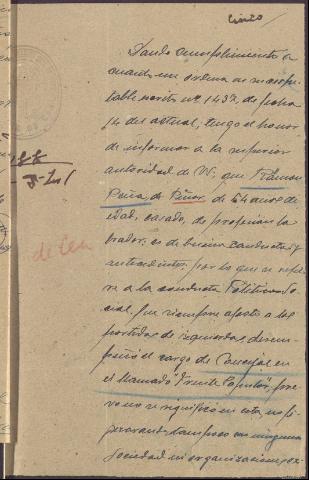 Cinco
Dando cumplimiento a
cuanto me ordena en su respe-
table escrito nº 1432, de fecha
14 del actual, tengo el honor
de informar a la superior
autoridad de V; que Ramon
Peña, de Piñor de 54 años de
edad, casado, de profesion la-
brador, es de buena conducta y
antecedentes, por lo que se refie-
re a la conducta Politico So-
cial, fue siempre afecto a los
partidos de izquierdas desem-
peñó el cargo de Concejal en
el llamado Frente Popular, pero
no se significó en esta, no fi-
gurando tampoco en ninguna
sociedad ni organizaciones, ex-